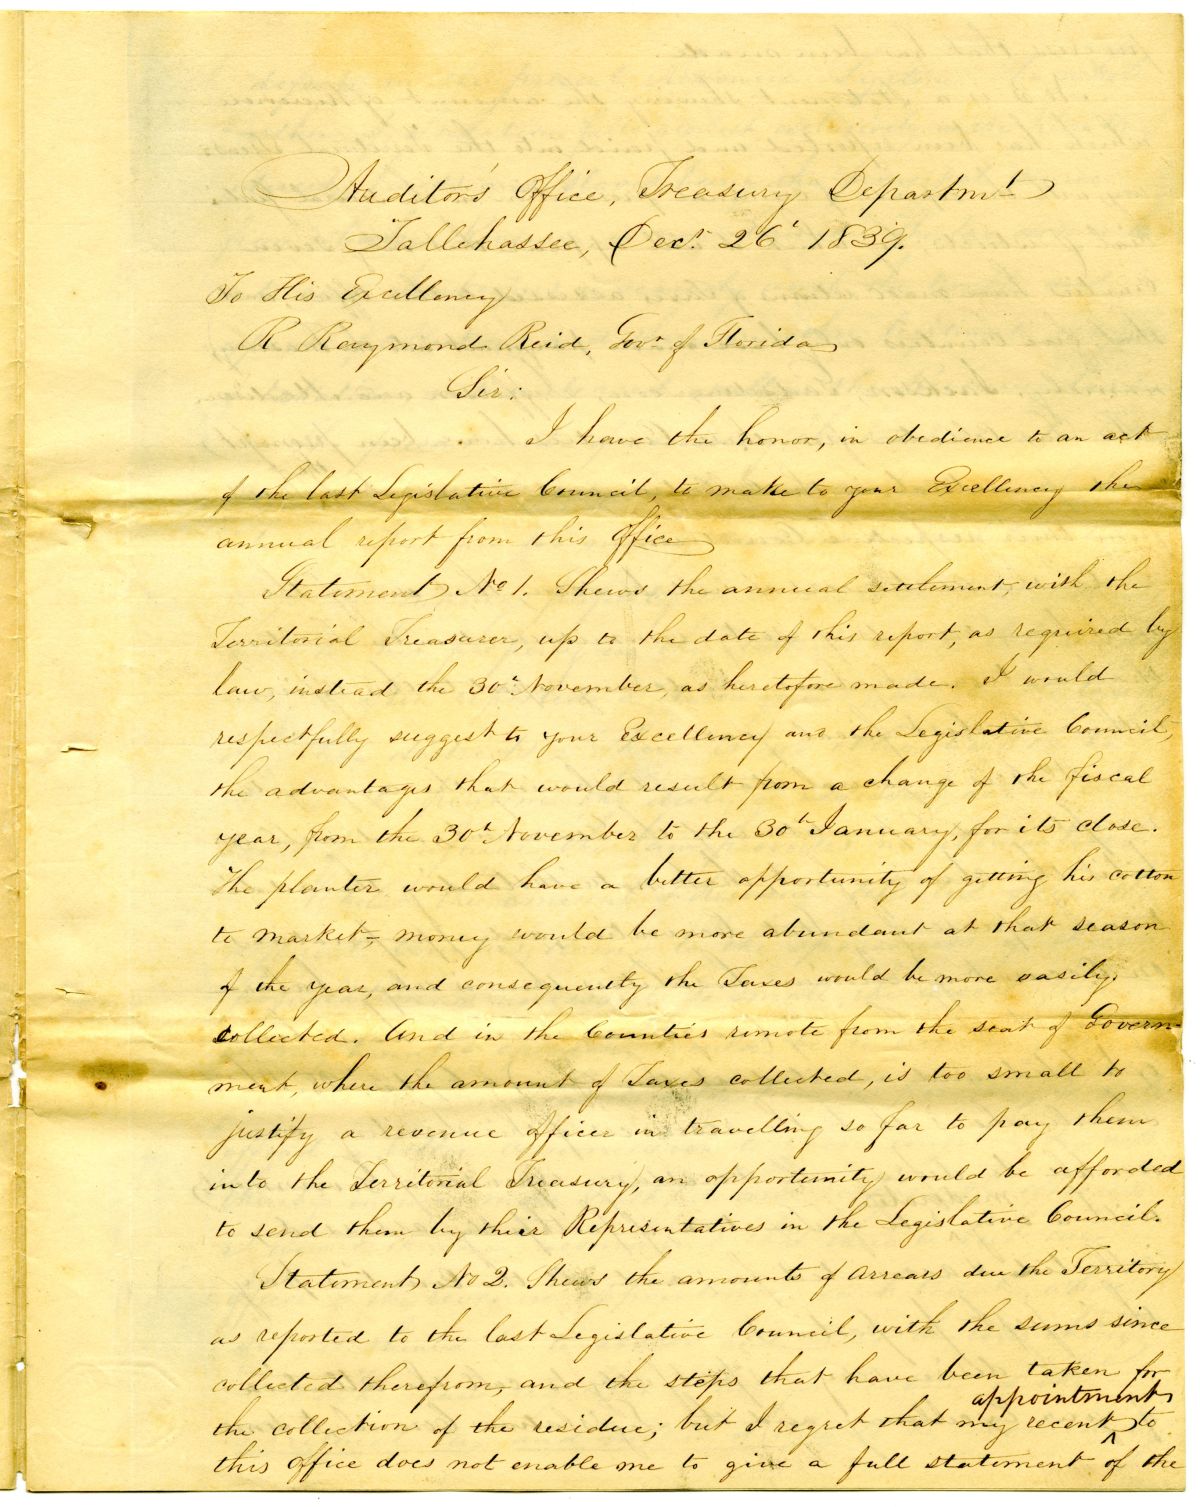 Auditor's Office, Treasury Departmt
Tallehassee, Decr. 26t 1839.
To His Excellency
R Raymond Reid, Govr of Florida
Sir:
I have the honor, in obedience to an act
of the last Legislative Council, to make to your Excellency the
annual report from this Office
Statement No 1. Shews the annual settlement, with the
Territorial Treasurer, up to the date of this report, as required by
law, instead the 30t November, as heretofore made. I would
respectfully suggest to your Excellency and the Legislative Council,
the advantages that would result from a change of the fiscal
year, from the 30t November to the 30th January, for its close.
The planter would have a better opportunity of getting his cotton
to market - money would be more abundant at that season
of the year, and consequently the Taxes would be more easily
collected. And in the Counties remote from the seat of Govern-
ment, where the amount of Taxes collected, is too small to
justify a revenue officer in travelling so far to pay them
into the Territorial Treasury, an opportunity would be afforded
to send them by their Representatives in the Legislative Council.
Statement No 2. Shews the amounts of arrears due the Territory
as reported to the last Legislative Council, with the sums since
collected therefrom, and the steps that have been taken for
the collection of the residue; but I regret that my recent ^ appointment to
this office does not enable me to give a full statement of the